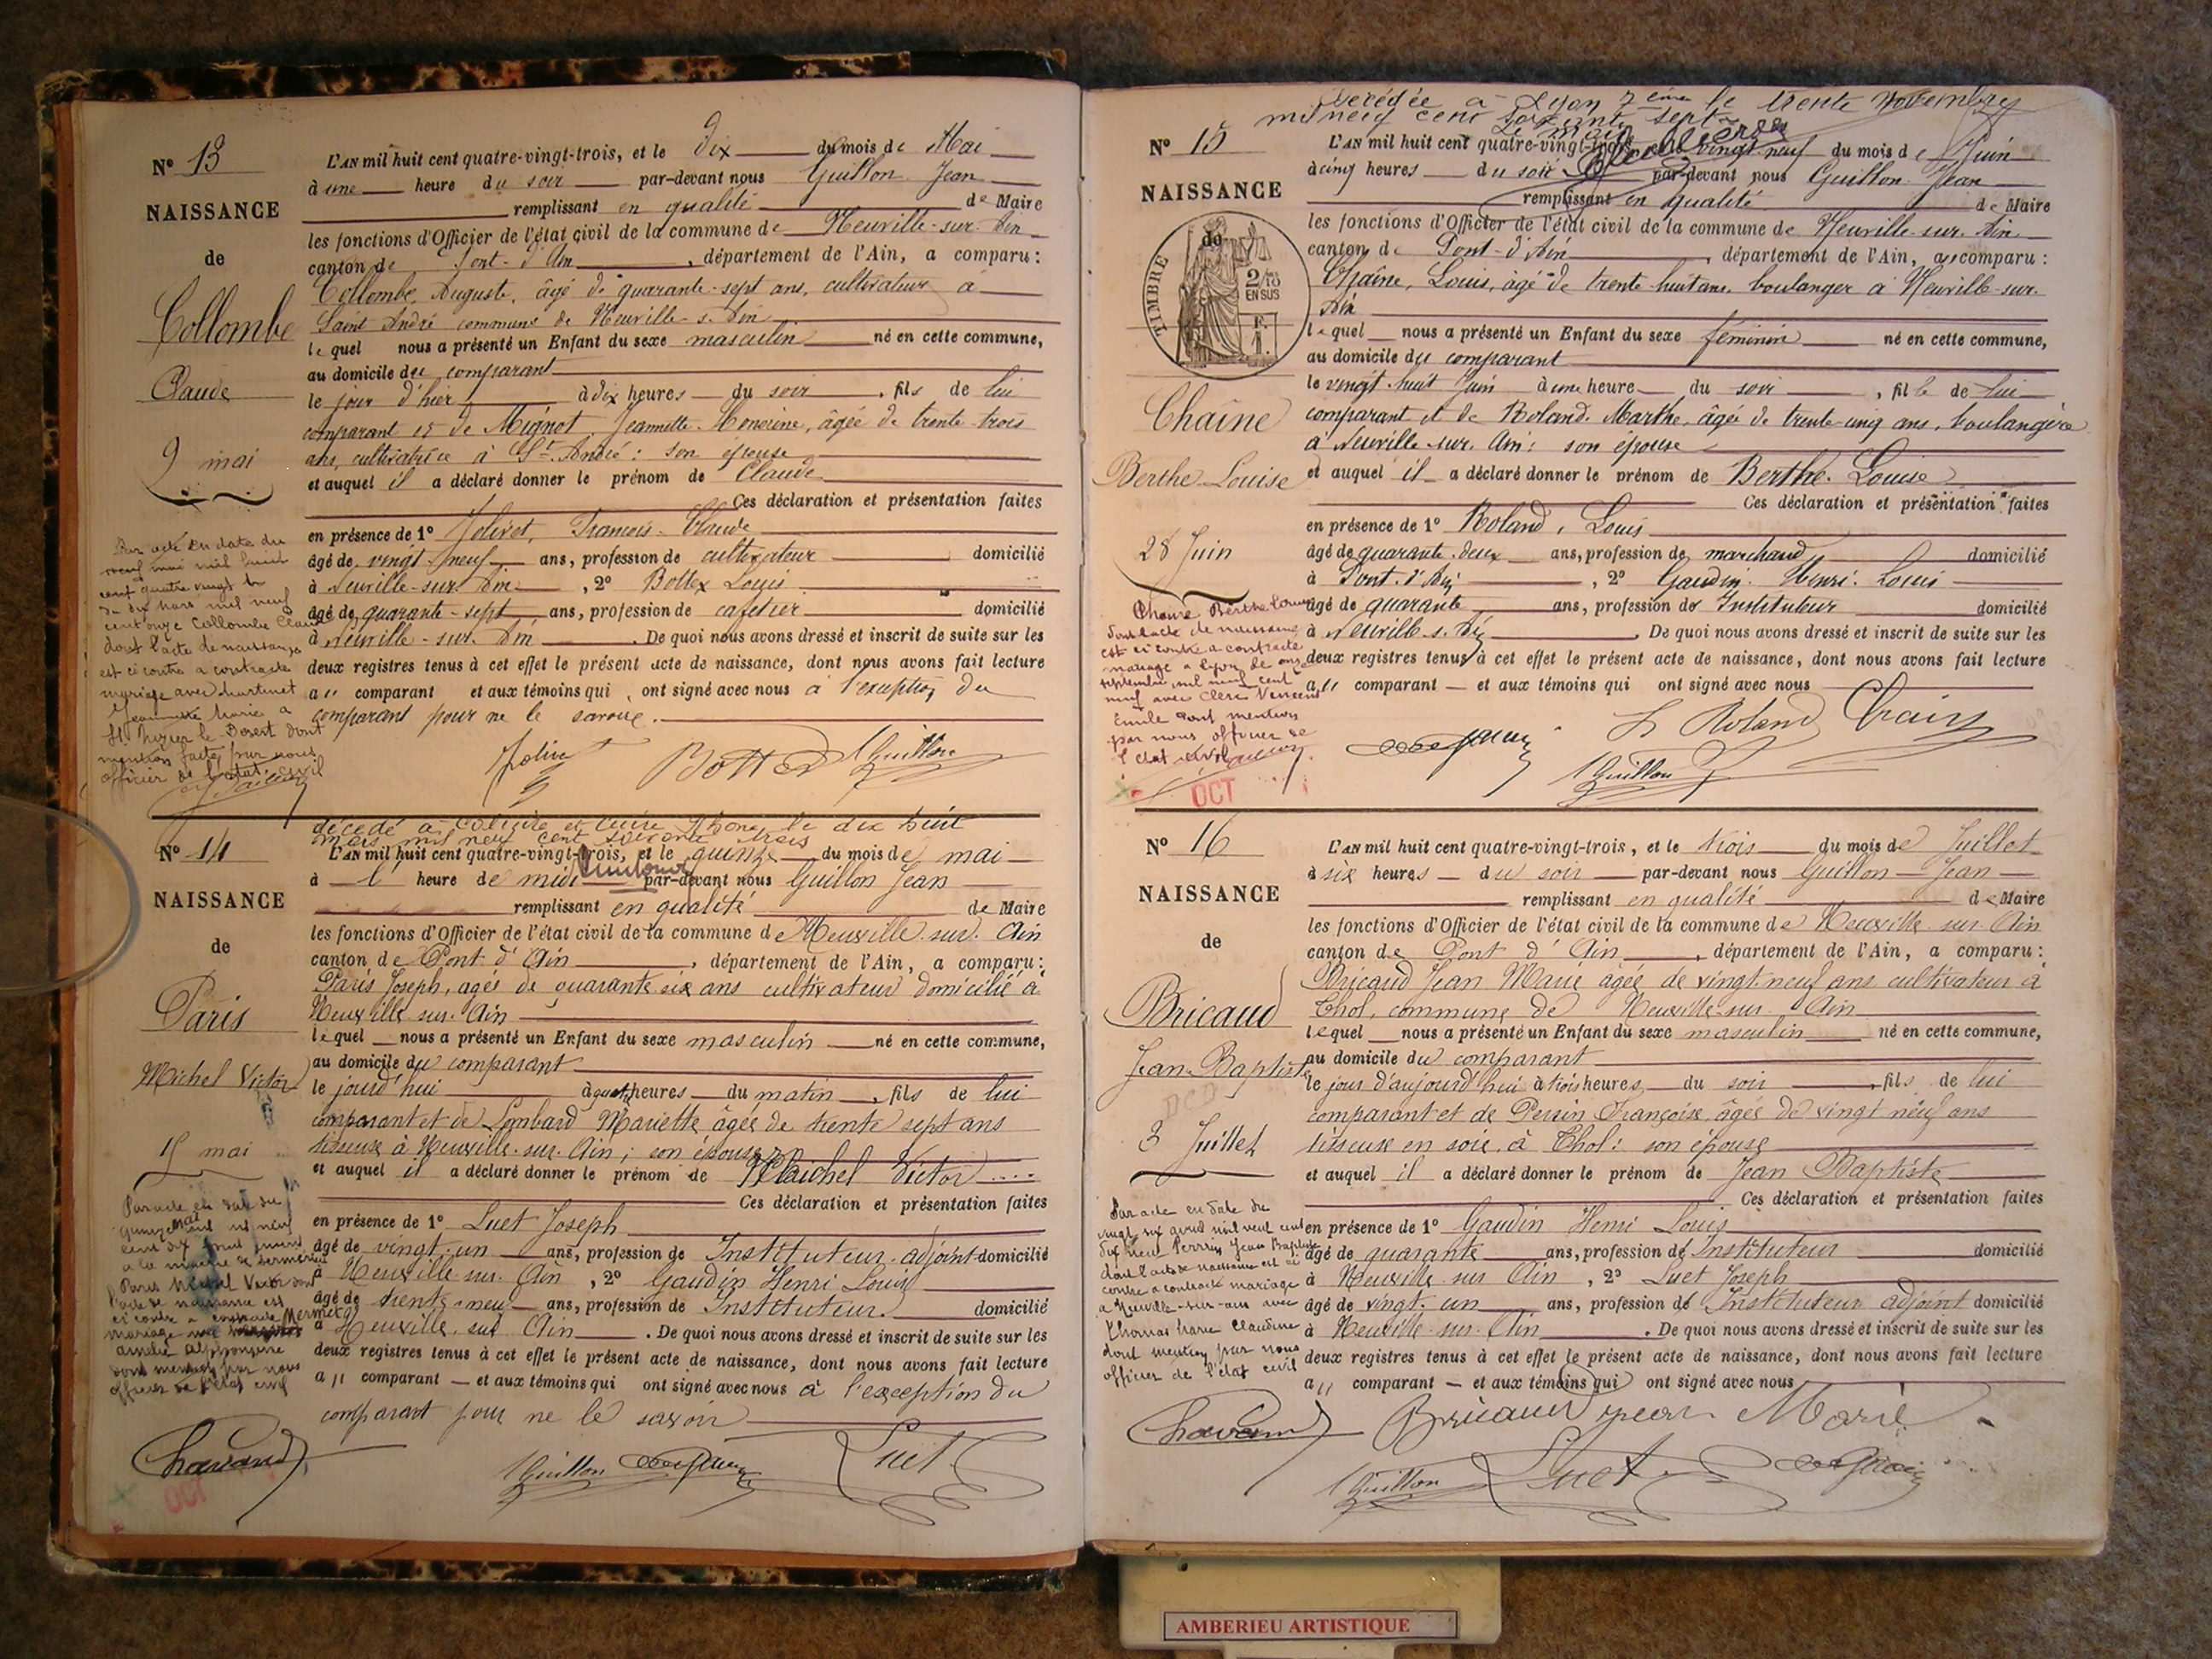 N° 13
NAISSANCE
de
Collombe
Claude
9 mai
L'AN mil huit cent quatre-vingt-trois, et le dix du mois de Mai
à une heure du soir par-devant nous Guillon Jean
remplissant en qualité de Maire
les fonctions d'Officier de l'état civil de la commune de Neuville-sur-Ain
canton de Pont-d'Ain, département de l'Ain, a comparu:
Collombe, Auguste, âgé de quarante-sept ans, cultivateur à
Saint André commune de Neuville-s-Ain
lequel nous a présenté un Enfant du sexe masculin né en cette commune,
au domicile du comparant
le jour d'hier à dix heures du soir, fils de lui
comparant et de Mignot, Jeannette, âgée de trente-trois
ans, cultivatrice à St-André: son épouse
et auquel il a déclaré donner le prénom de Claude
Ces déclaration et présentation faites
en présence de 1° Jolivet, François-Claude
âgé de vingt-neuf ans, profession de cultivateur domicilié
à Neuville-sur-Ain, 2° Bottex Louis
âgé de quarante-sept ans, profession de cafetier domicilié
à Neuville-sur-Ain. De quoi nous avons dressé et inscrit de suite sur les
deux registres tenus à cet effet le présent acte de naissance, dont nous avons fait lecture
au comparant et aux témoins qui ont signé avec nous à l'exception du
comparant pour ne le savoir.
Par acte en date du
dix mars mil neuf
cent onze Collombe Claude
dont l'acte de naissance
est ci contre a contracté
mariage avec
Jeannette Marie a
St Nizier le Désert dont
mention faite par nous
officier de l'état civil
Jolivet Bottex Guillon
décédé à Caluire et Cuire Rhône le dix huit
mars mil neuf cent soixante trois
N° 14
NAISSANCE
de
Paris
Michel Victor
15 mai
L'AN mil huit cent quatre-vingt-trois, et le quinze du mois de mai
à l' heure de midi par-devant nous Guillon Jean
remplissant en qualité de Maire
les fonctions d'Officier de l'état civil de la commune de Neuville-sur-Ain
canton de Pont d'Ain, département de l'Ain, a comparu:
Paris Joseph, agé de quarante six ans cultivateur domicilié à
Neuville-sur-Ain
lequel nous a présenté un Enfant du sexe masculin né en cette commune,
au domicile du comparant
le jourd'hui à quatre heures du matin, fils de lui
comparant et de Lombard Mariette âgée de trente sept ans
tisseuse à Neuville-sur-Ain; son épouse
et auquel il a déclaré donner le prénom de Michel Victor
Ces déclaration et présentation faites
en présence de 1° Luet Joseph
âgé de vingt-un ans, profession de Instituteur-adjoint domicilié
à Neuville-sur-Ain, 2° Gaudin Henri Louis
âgé de trente-neuf ans, profession de Instituteur. domicilié
à Neuville sur Ain. De quoi nous avons dressé et inscrit de suite sur les
deux registres tenus à cet effet le présent acte de naissance, dont nous avons fait lecture
au comparant et aux témoins qui ont signé avec nous à l'exception du
comparant pour ne le savoir
Par acte en date du
quinze
a la mairie de
Paris Michel Victor dont
l'acte de naissance est
ci contre a contracté
mariage avec Mermet
Amélie Alphonsine
dont mention par nous
officier de l'état civil
Chavand Guillon Luet
OCT
Décédée à Lyon 7ème le trente Novembre
mil neuf cent soixante sept
N° 15
NAISSANCE
de
TIMBRE
2/10
EN SUS
Chaîne
Berthe Louise
28 Juin
L'AN mil huit cent quatre-vingt-trois et le vingt-neuf du mois de Juin
à cinq heures du soir par-devant nous Guillon Jean
remplissant en qualité de Maire
les fonctions d'Officier de l'état civil de la commune de Neuville-sur-Ain
canton de Pont-d'Ain, département de l'Ain, a comparu:
Chaîne, Louis, âgé de trente-huit ans, boulanger à Neuville-sur-
Ain
lequel nous a présenté un Enfant du sexe féminin né en cette commune,
au domicile du comparant
le vingt-huit Juin à une heure du soir, fille de lui
comparant et de Roland Marthe, âgée de trente-cinq ans, boulangère
à Neuville-sur-Ain: son épouse
et auquel il a déclaré donner le prénom de Berthe-Louise
Ces déclaration et présentation faites
en présence de 1° Roland, Louis
âgé de quarante-deux ans, profession de marchand domicilié
à Pont-d'Ain, 2° Gaudin Henri-Louis
âgé de quarante ans, profession de Instituteur domicilié
à Neuville-s-Ain. De quoi nous avons dressé et inscrit de suite sur les
deux registres tenus à cet effet le présent acte de naissance, dont nous avons fait lecture
au comparant et aux témoins qui ont signé avec nous
Chaîne Berthe Louise
dont l'acte de naissance
est ci contre a contracté
mariage a Lyon le onze
septembre mil neuf cent
neuf avec Clerc Vincent
Emile dont mention
par nous officier de
l'état civil
L Roland Chaîne
Guillon
OCT
N° 16
NAISSANCE
de
Bricaud
Jean-Baptiste
DCD
3 Juillet
L'AN mil huit cent quatre-vingt-trois, et le trois du mois de Juillet
à six heures du soir par-devant nous Guillon Jean
remplissant en qualité de Maire
les fonctions d'Officier de l'état civil de la commune de Neuville-sur-Ain
canton de Pont d'Ain, département de l'Ain, a comparu:
Bricaud Jean Marie âgé de vingt-neuf ans cultivateur à
Thol, commune de Neuville-sur-Ain
lequel nous a présenté un Enfant du sexe masculin né en cette commune,
au domicile du comparant
le jour d'aujourd'hui à trois heures du soir, fils de lui
comparant et de Perrin Françoise, âgée de vingt neuf ans
tisseuse en soie, à Thol: son épouse
et auquel il a déclaré donner le prénom de Jean Baptiste
Ces déclaration et présentation faites
en présence de 1° Gaudin Henri Louis
âgé de quarante ans, profession de Instituteur domicilié
à Neuville sur Ain, 2° Luet Joseph
âgé de vingt-un ans, profession de Instituteur adjoint domicilié
à Neuville-sur-Ain. De quoi nous avons dressé et inscrit de suite sur les
deux registres tenus à cet effet le présent acte de naissance, dont nous avons fait lecture
au comparant et aux témoins qui ont signé avec nous
Par acte en date du
vingt six avril mil neuf cent
dix neuf Perrin Jean Baptiste
dont l'acte de naissance est ci
contre a contracté mariage
a Neuville-sur-ain avec
Thomas Marie Claudine
dont mention par nous
officier de l'état civil
Chavand Bricaud jean Marie
Guillon Luet
AMBERIEU ARTISTIQUE